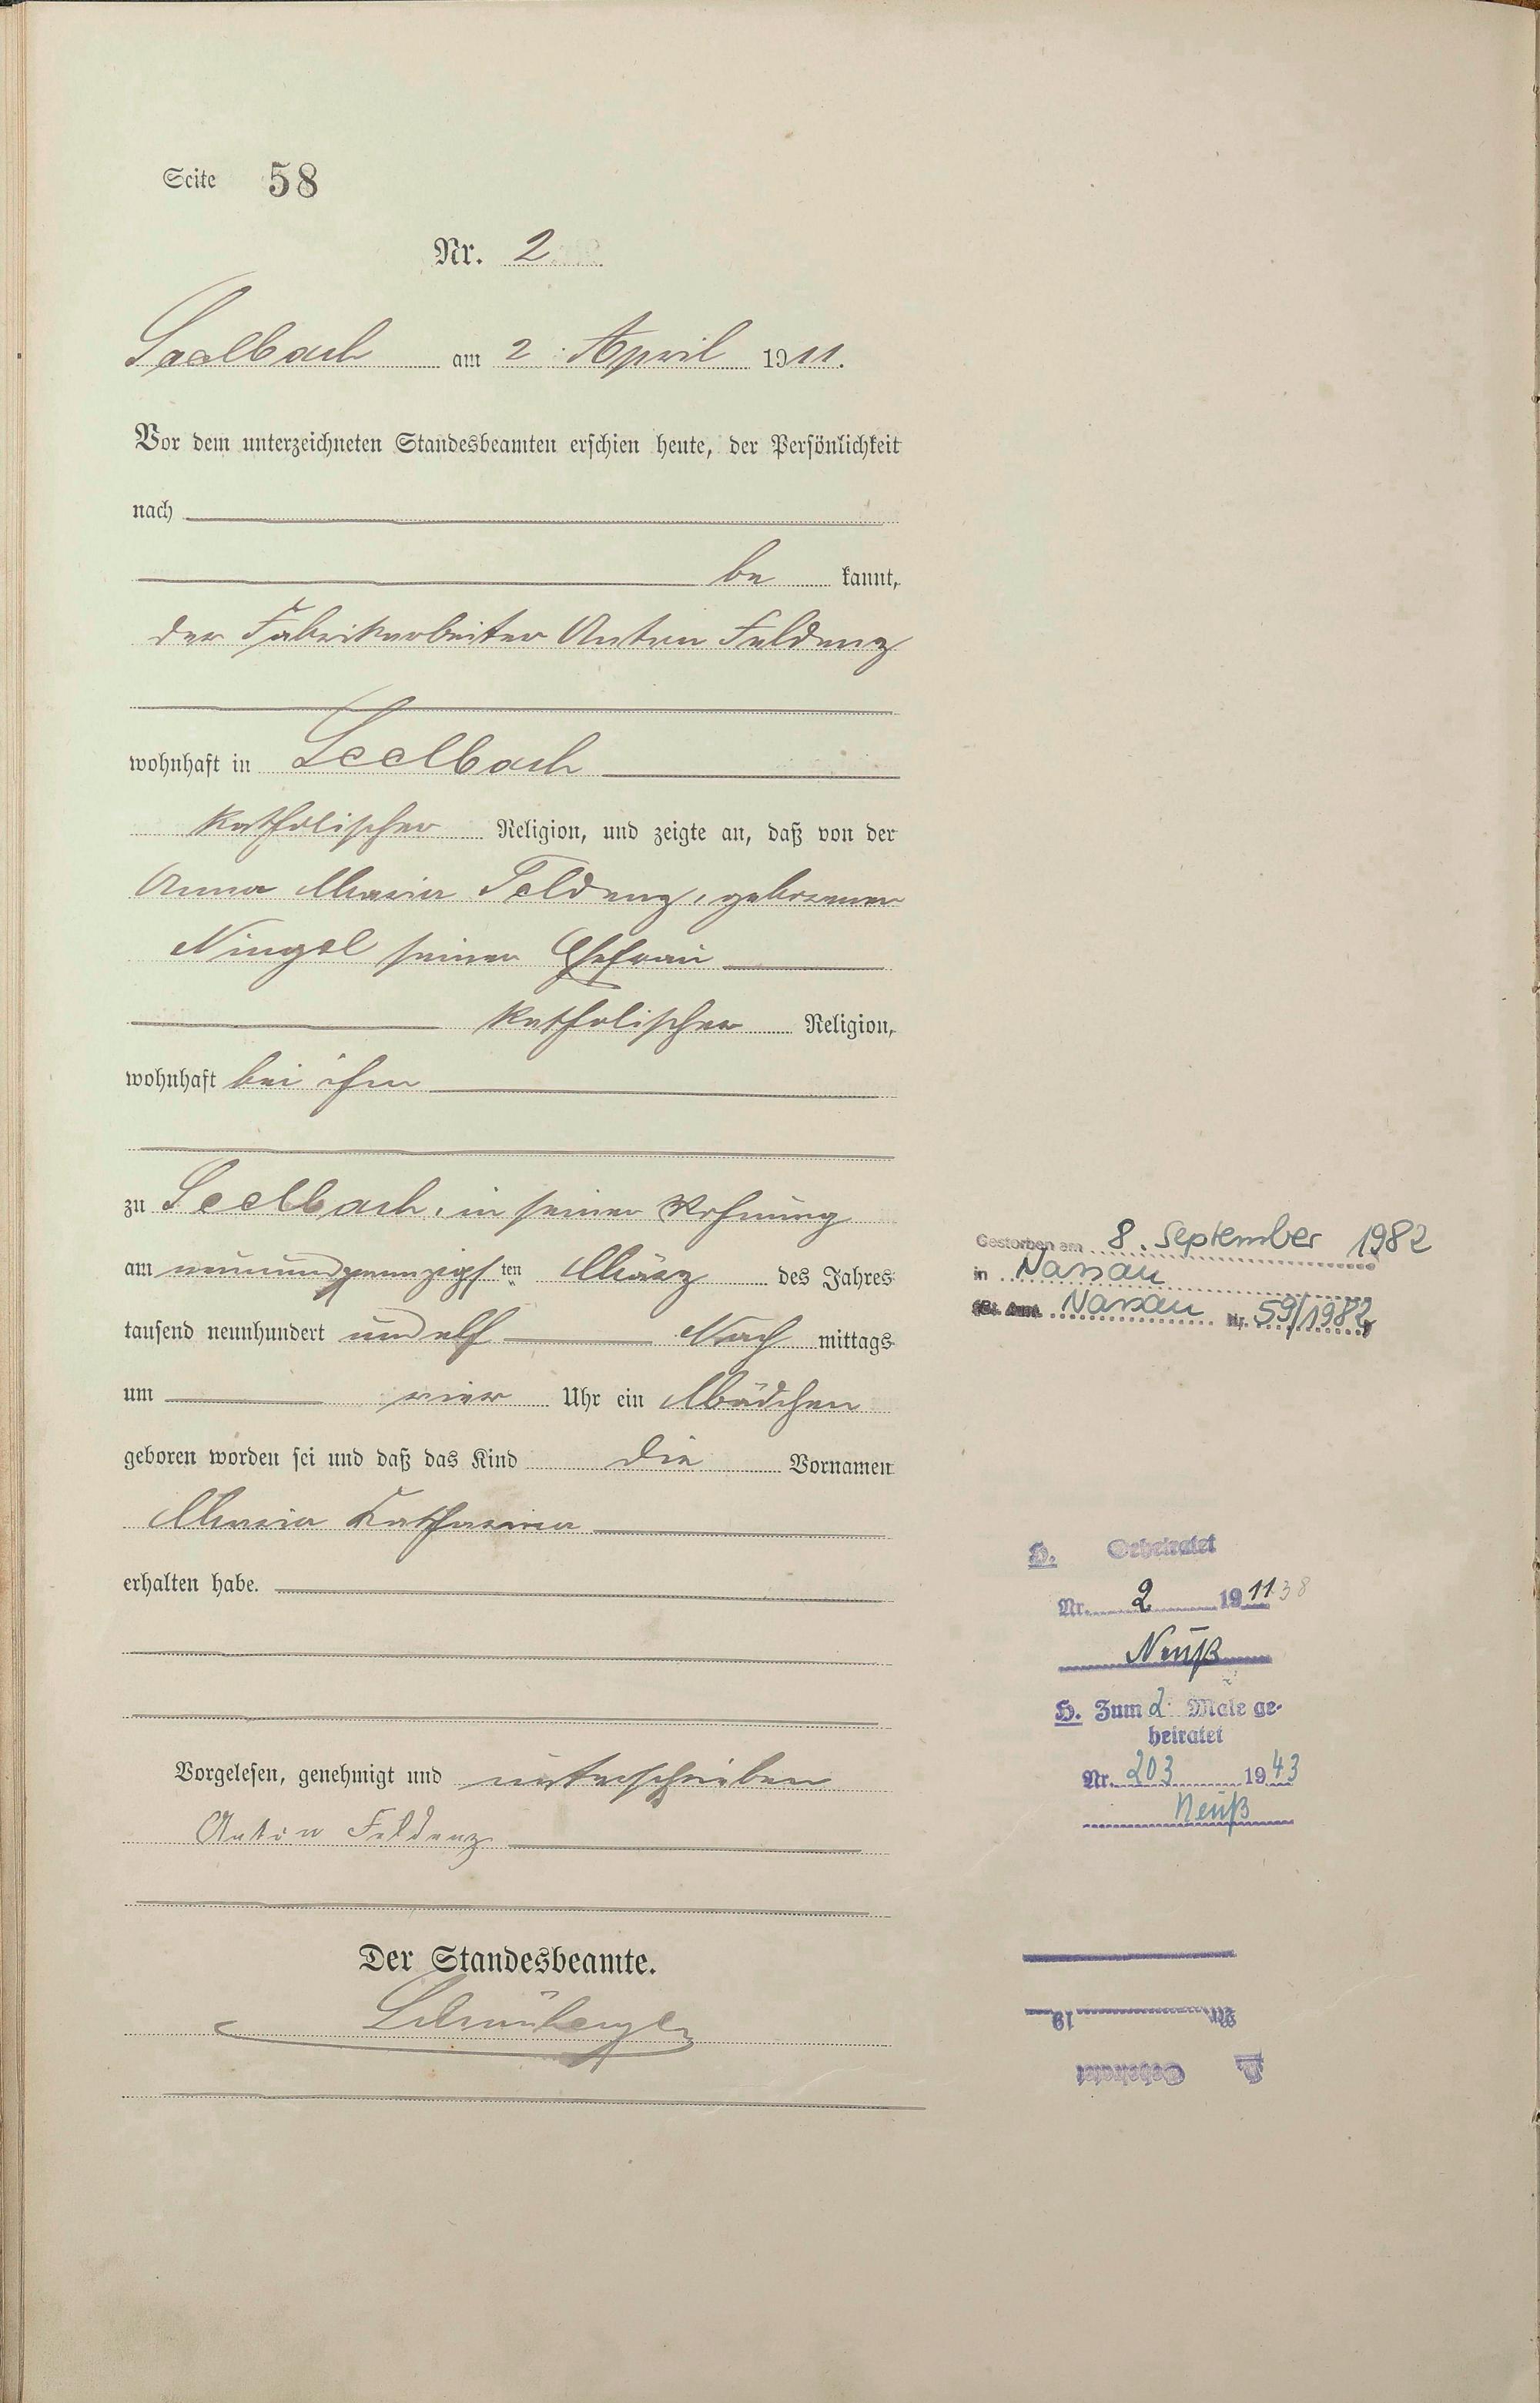 Seite 58
Nr. 2
Seelbach am 2. April 1911.
Vor dem unterzeichneten Standesbeamten erschien heute, der Persönlichkeit
nach
be kannt,
der Fabrikarbeiter Anton Feldenz
wohnhaft in Seelbach
katholischer Religion, und zeigte an, daß von der
Anna Maria Feldenz, geborenen
Ningel seiner Ehefrau
katholischer Religion,
wohnhaft bei ihm
zu Seelbach, in seiner Wohnung
am neunundzwanzigsten März des Jahres
tausend neunhundert und elf Nach mittags
um vier Uhr ein Mädchen
geboren worden sei und daß das Kind die Vornamen
Maria Katharina
erhalten habe.
Vorgelesen, genehmigt und unterschrieben
Anton Feldenz
Der Standesbeamte.
Gestorben am 8. September 1982
in Nassau
St. Amt Nassau Nr. 59/1982
H. Geheiratet
Nr. 2 1911 38
Neuß
H. Zum 2. Male ge-
heiratet
Nr. 203 1943
Neuß
Nr. 19
H. Geheiratet